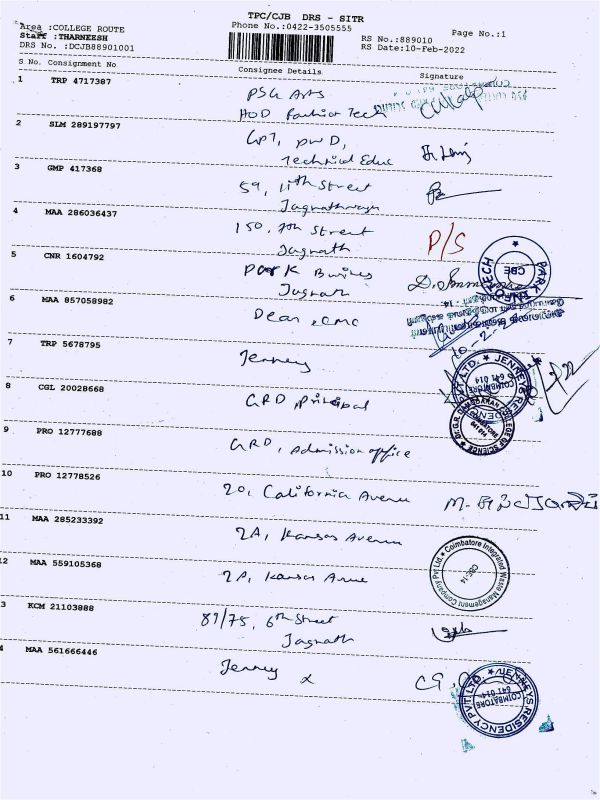 TPC/CJB DRS - SITR
Area :COLLEGE ROUTE
Phone No.:0422-3505555
Page No.:1
Staff :THARNEESH
RS No.:889010
DRS No. :DCJB88901001
RS Date:10-Feb-2022
S No. Consignment No Consignee Details Signature
1 TRP 4717387 PSG Arts
HOD Fashion Tech
2 SLM 289197797 GPT, PWD,
Technical Educ
3 GMP 417368 59, 11th Street
4 MAA 286036437 150, 7th Street
Jagnath P/S
5 CNR 1604792 Park
Jagnath
PARK
CBE
6 MAA 857058982 Dean, CMC
7 TRP 5678795 Jenney
JENNEYS RESIDENCY PVT LTD.
COIMBATORE
641 014
8 CGL 20028668 GRD, Principal
9 PRO 12777688 GRD, Admission office
10 PRO 12778526 20, California Avenue
11 MAA 285233392 2A, Kansas Avenue
2 MAA 559105368 2A, Kansas
Coimbatore Integrated Waste Management Company Pvt Ltd.
CBE-14
3 KCM 21103888 89/75, 6th Street
Jagnath
4 MAA 561666446 Jenney
JENNEYS RESIDENCY PVT LTD.
COIMBATORE
641 014